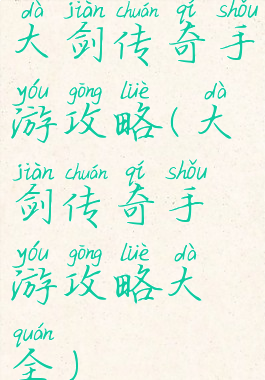 dà jiàn chuán qí shǒu
大剑传奇手
yóu gōng lüè dà
游攻略(大
jiàn chuán qí shǒu
剑传奇手
yóu gōng lüè dà
游攻略大
quán
全)